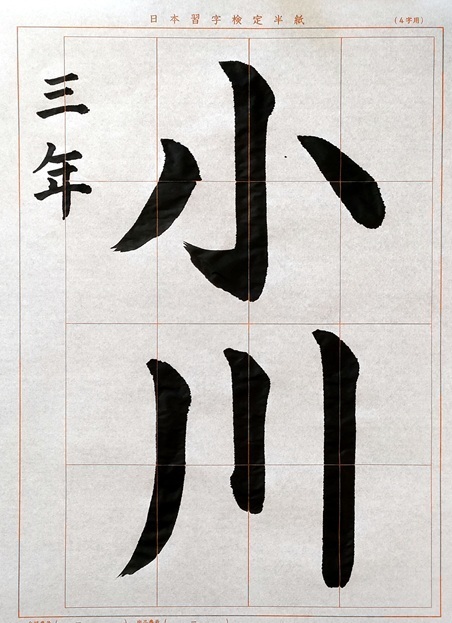 日本習字検定半紙
(4字用)
小川
三年